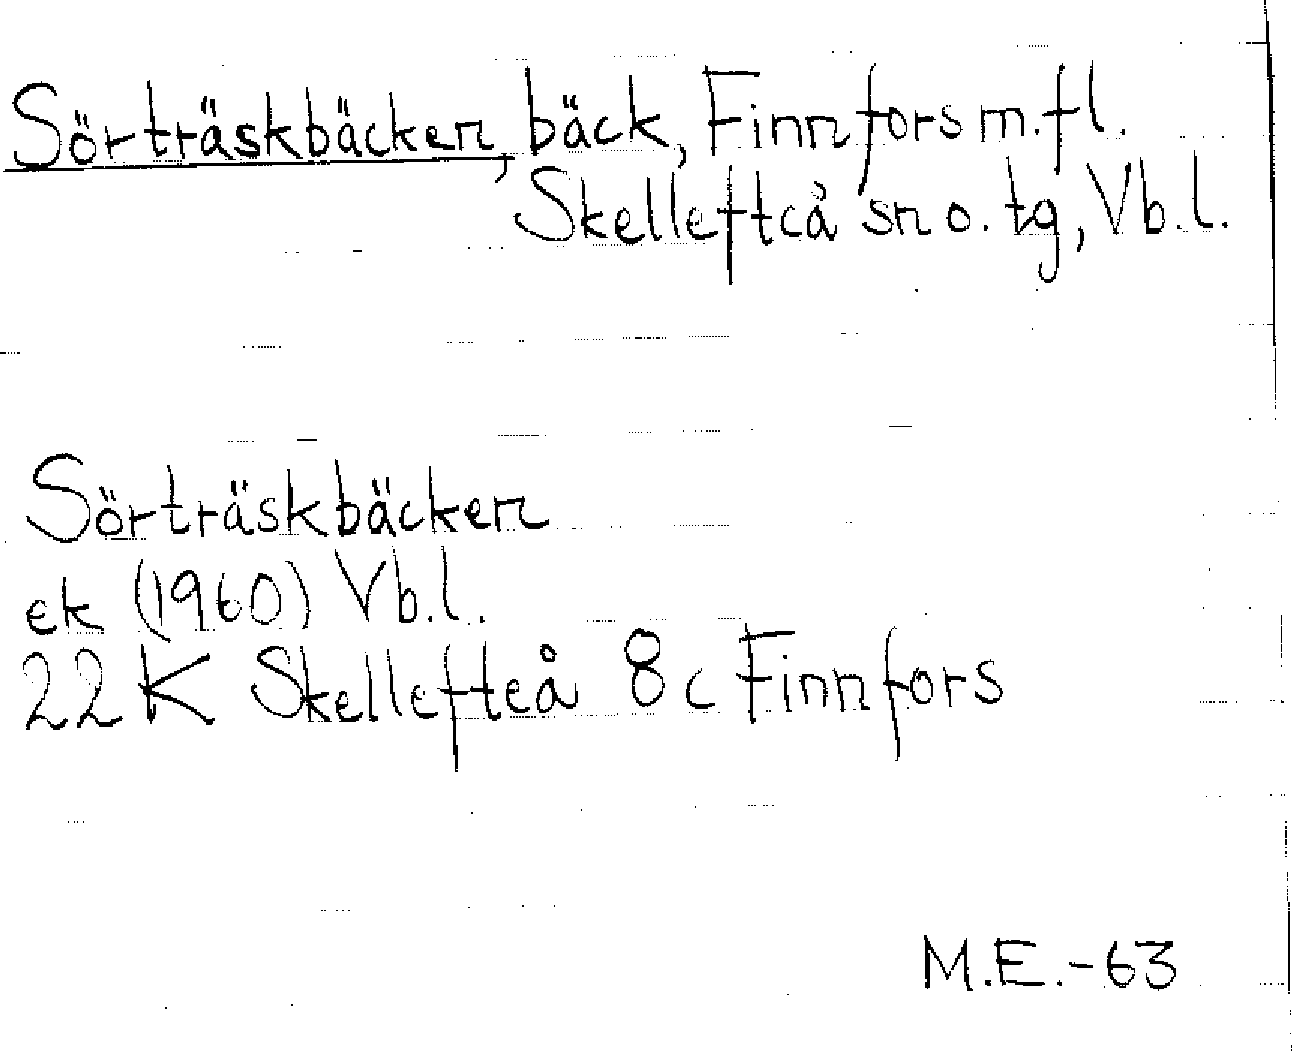 Sörträskbäcken, bäck, Finnfors m.fl.
Skellefteå sn o. tg, Vb.l.
Sörträskbäcken
ek (1960) Vb.l.
22 K Skellefteå 8c Finnfors
M.E.-63